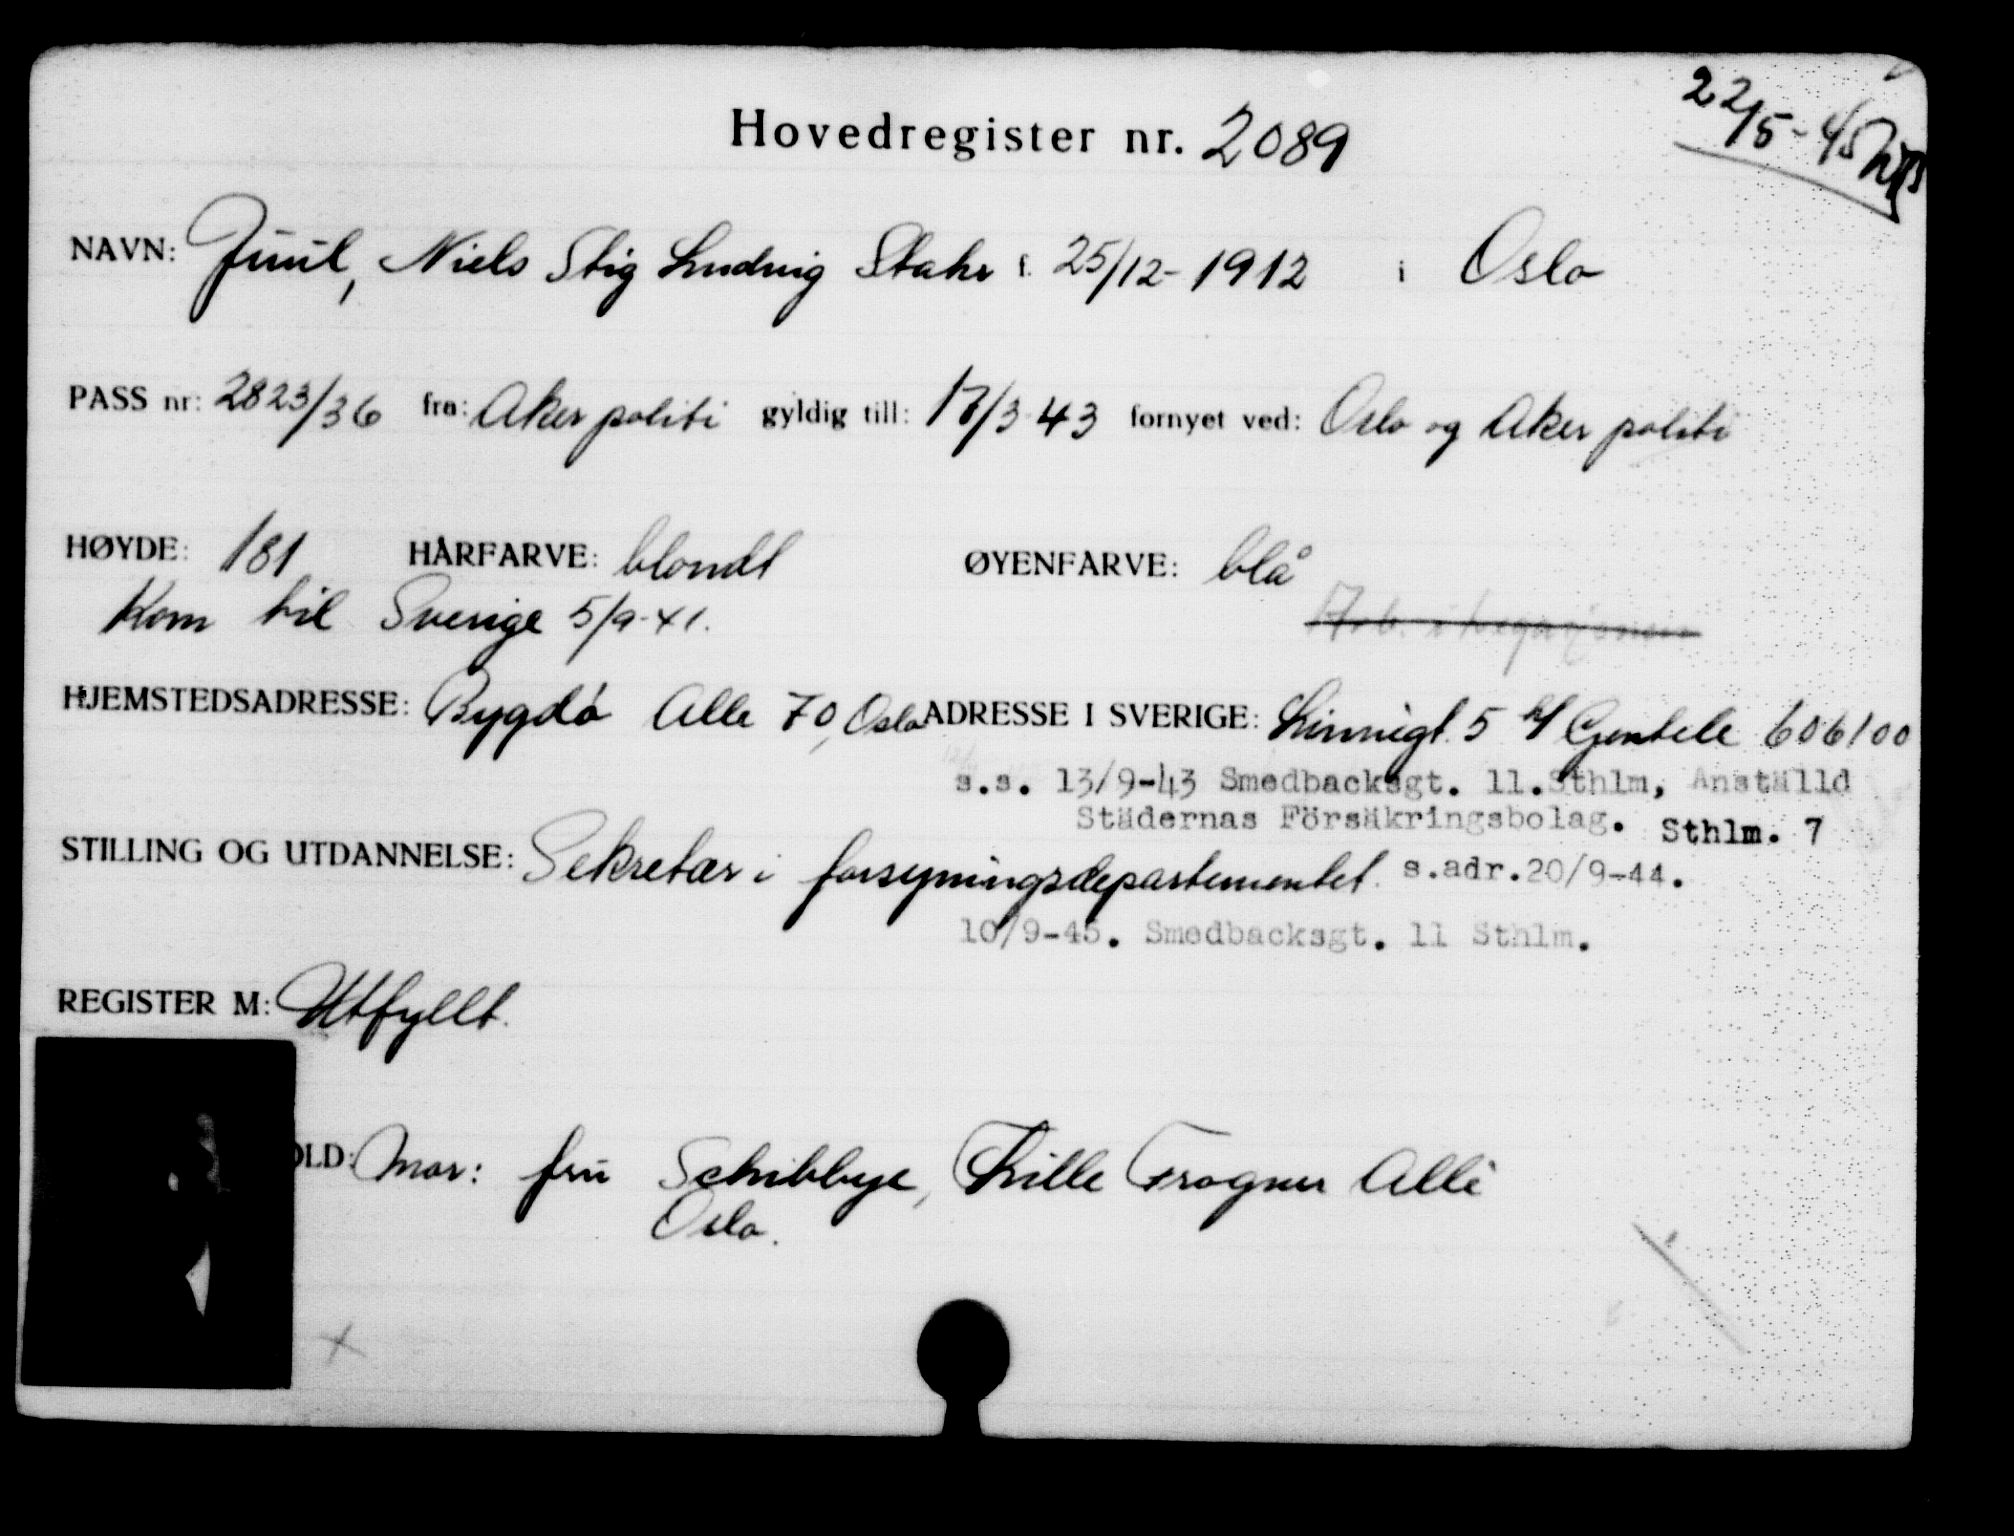 22/5-45
Hovedregister nr. 2089
NAVN: Juul, Niels Stig Ludvig Stahr f. 25/12-1912 i Oslo
PASS nr: 2823/36 fra: Aker politi gyldig till: 17/3 43 fornyet ved: Oslo og Aker politi
HØYDE: 181 HÅRFARVE: blondt ØYENFARVE: blå
Kom til Sverige 5/9-41.
HJEMSTEDSADRESSE: Bygdö Alle 70, Oslo ADRESSE I SVERIGE: Linnégt. 5 b/ Gentele 606100
s.s. 13/9-43 Smedbacksgt. 11.Sthlm, Anställd
Städernas Försäkringsbolag. Sthlm. 7
STILLING OG UTDANNELSE: Sekretær i forsyningsdepartementet. s.adr.20/9-44.
10/9-45. Smedbacksgt. 11 Sthlm.
REGISTER M: Utfyllt.
OLD: Mor: fru Schibbye, Lille Frogner Allé
Oslo.